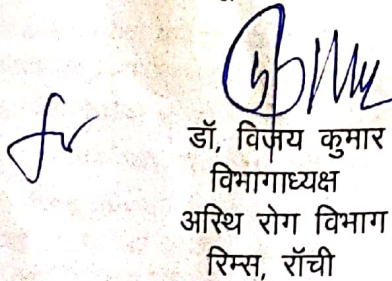 डॉ, विजय कुमार
विभागाध्यक्ष
अस्थि रोग विभाग
रिम्स, राॅंची